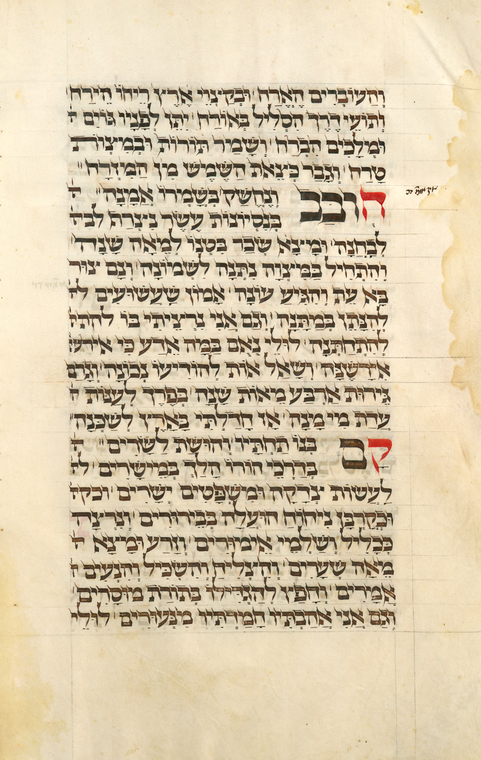 והעוברים הארח ובקיצוי ארץ ריחו הירח
ותועי דרך הסליל באורח יתן לפניו גוים
ומלכים הברח ושמר תורות ובמצות
סרח וגבר כצאת השמש מן המזרח
ונחשק בשמרו אמנה
בנסיונות עשר נצרת
לבחנה ומיצא שכר בסנו למאה שנה
והתחיל במיצוה נתנה לשמונה ונם יצור
בא עת והגיע עונה אמון שעשועים
במתנה וגם אני נרציתי בו
להתחתנה לולי נאם במה ארע כי
אירשנה ושאל אות להוריעו נבונה וגם
גירות ארבע מאות שנה בפרך לענות
עדת מי מנה אז חדלתי בארץ לשכנה
קם בנו תחתיו וחושת לשרים
בדרכי הורו הלך במישרים
לעשות צדקה ומשפטים ישרים
ובקרבן ניחוח הועלה בבירורים ונרצה
בכליל ושלמי אימורים וזרע ומיצא
מאה שערים והצליח והשכיל והנעים
אמרים והפץ להגדילו בתורת מוסרים
וגם אני אהבתיו המרתיו מנעורים לולי